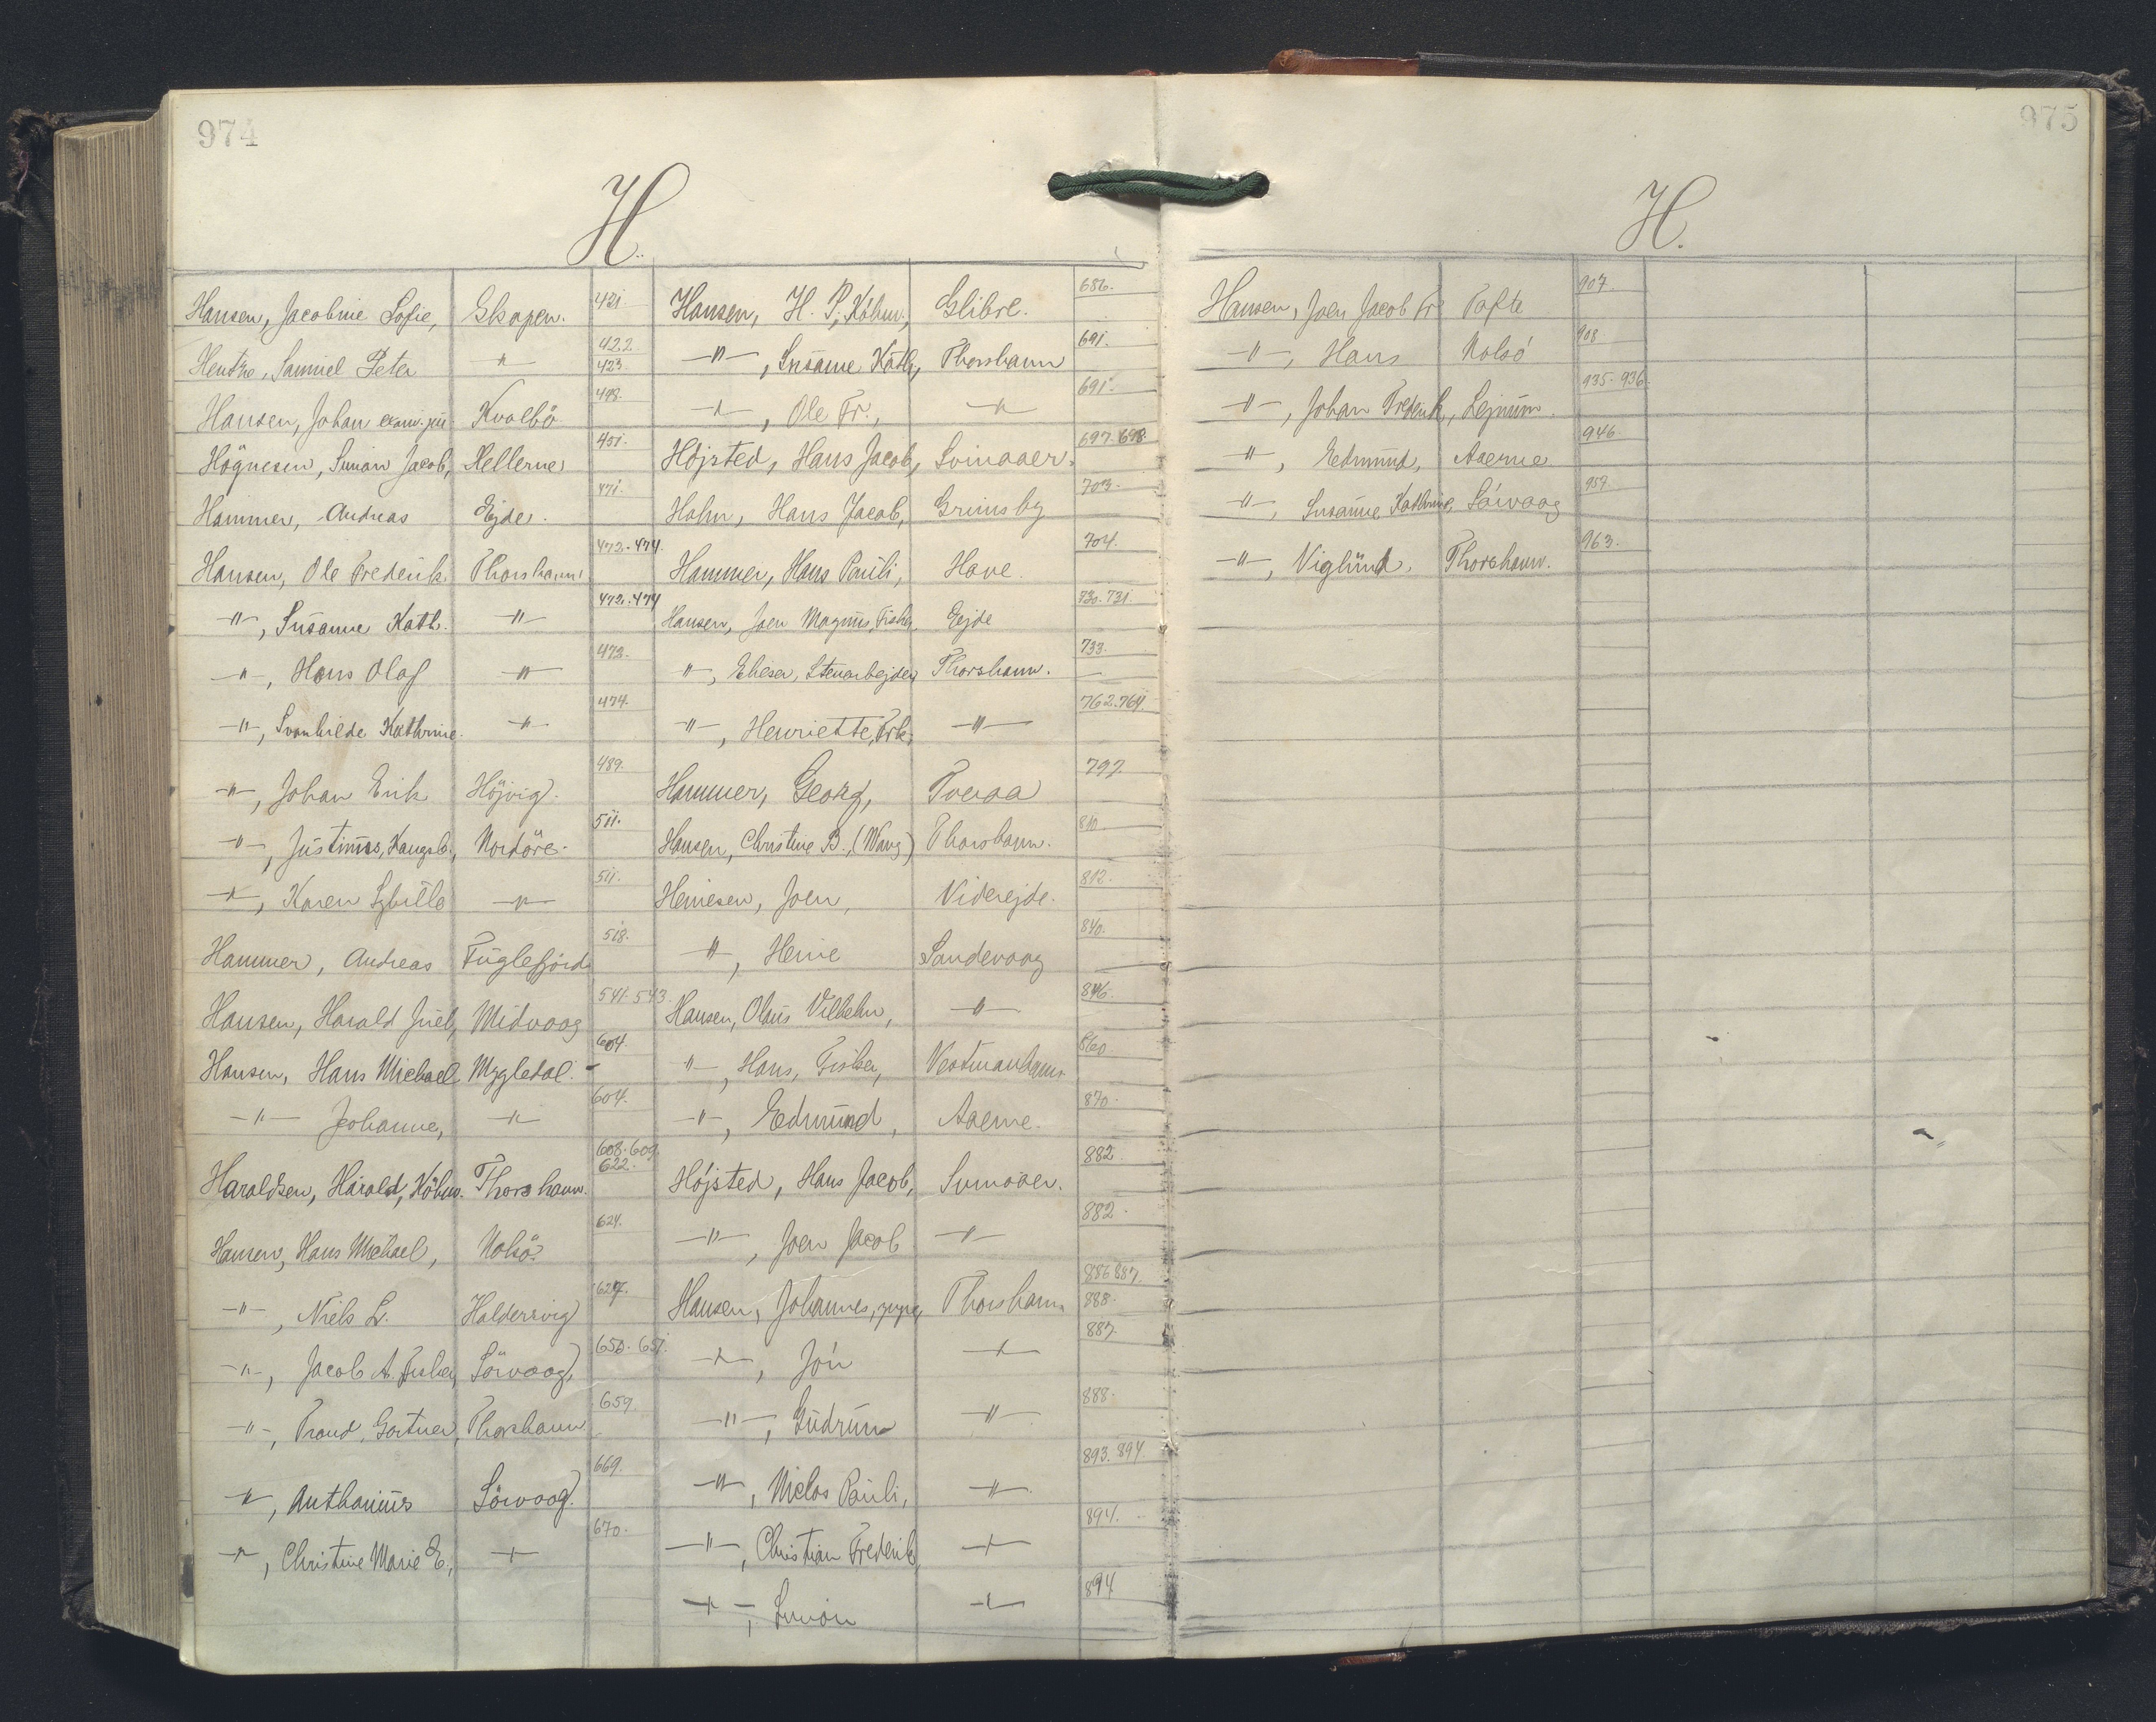 974
H.
Hansen, Jacobine Sofie, Skopen. 421
Hentze, Samuel Peter -"- 422. 423.
Hansen, Johan exam. jur. Kvalbö 448.
Högnesen, Simon Jacob, Hellerne 451.
Hammer, Andreas Ejde. 471.
Hansen, Ole Frederik. Thorshavn 472.474.
-"-, Susanne Kath. -"- 472.474
-"-, Hans Olaf -"- 473.
-"-, Svanhilde Kathrine. -"- 474.
-"-, Johan Erik Höjvig. 489.
-"-, Justinus, Kongsb., Nordöre. 511.
-"-, Karen Sybille -"- 511.
Hammer, Andreas Fuglefjord 518.
Hansen, Harald Juel, Midvaag 541. 543.
Hansen, Hans Michael Mygledal. 604.
-"- Johanne, -"- 604.
Haraldsen, Harald, Köbm. Thorshavn. 608. 609. 622.
Hansen, Hans Michael, Nolsö. 624.
-"-, Niels L. Haldersvig 627.
-"-, Jacob A. Fisker, Sörvaag, 650. 651.
-"-, Trond, Gartner, Thorshavn 659.
-"-, Anthonius Sörvaag. 669.
-"-, Christine Marie E., -"- 670.
Hansen, H. P., Köbm., Glibre. 686.
-"-, Susanne Kath, Thorshavn 691.
-"-, Ole Fr., -"- 691.
Höjsted, Hans Jacob, Svinaaer. 697. 698.
Hahn, Hans Jacob, Grimsby 703.
Hammer, Hans Pauli, Hove. 704.
Hansen, Joen Magnus, Fisker Ejde 730. 731.
-"-, Elieser, Stenarbejder, Thorshavn. 733.
-"-, Henriette, Frk. -"- 762.764.
Hammer, Georg, Tveraa 797.
Hansen, Christine B., (Wang) Thorshavn. 810.
Heinesen, Joen, Viderejde. 812.
-"-, Heine Sandevaag 840.
Hansen, Olaus Vilhelm, -"- 846.
-"-, Hans, Fisker, Vestmanhavn 860
-"-, Edmund, Aaerne. 870.
Höjsted, Hans Jacob, Svinaaer. 882.
-"-, Joen Jacob -"- 882.
Hansen, Johannes, Thorshavn 886 887. 888.
-"-, Jón -"- 887.
-"-, Gudrun -"- 888.
-"-, Niclas Pauli, -"- 893. 894.
-"-, Christian Frederik, -"- 894.
-"-, Simon -"- 894
975
H.
Hansen, Joen Jacob Fr. Tofte 907.
-"-, Hans Nolsö 908
-"-, Johan Frederik, Lejnum. 935. 936.
-"-, Edmund, Aaerne 946.
-"-, Susanne Kathrine, Sörvaag 959.
-"-, Viglund, Thorshavn. 963.